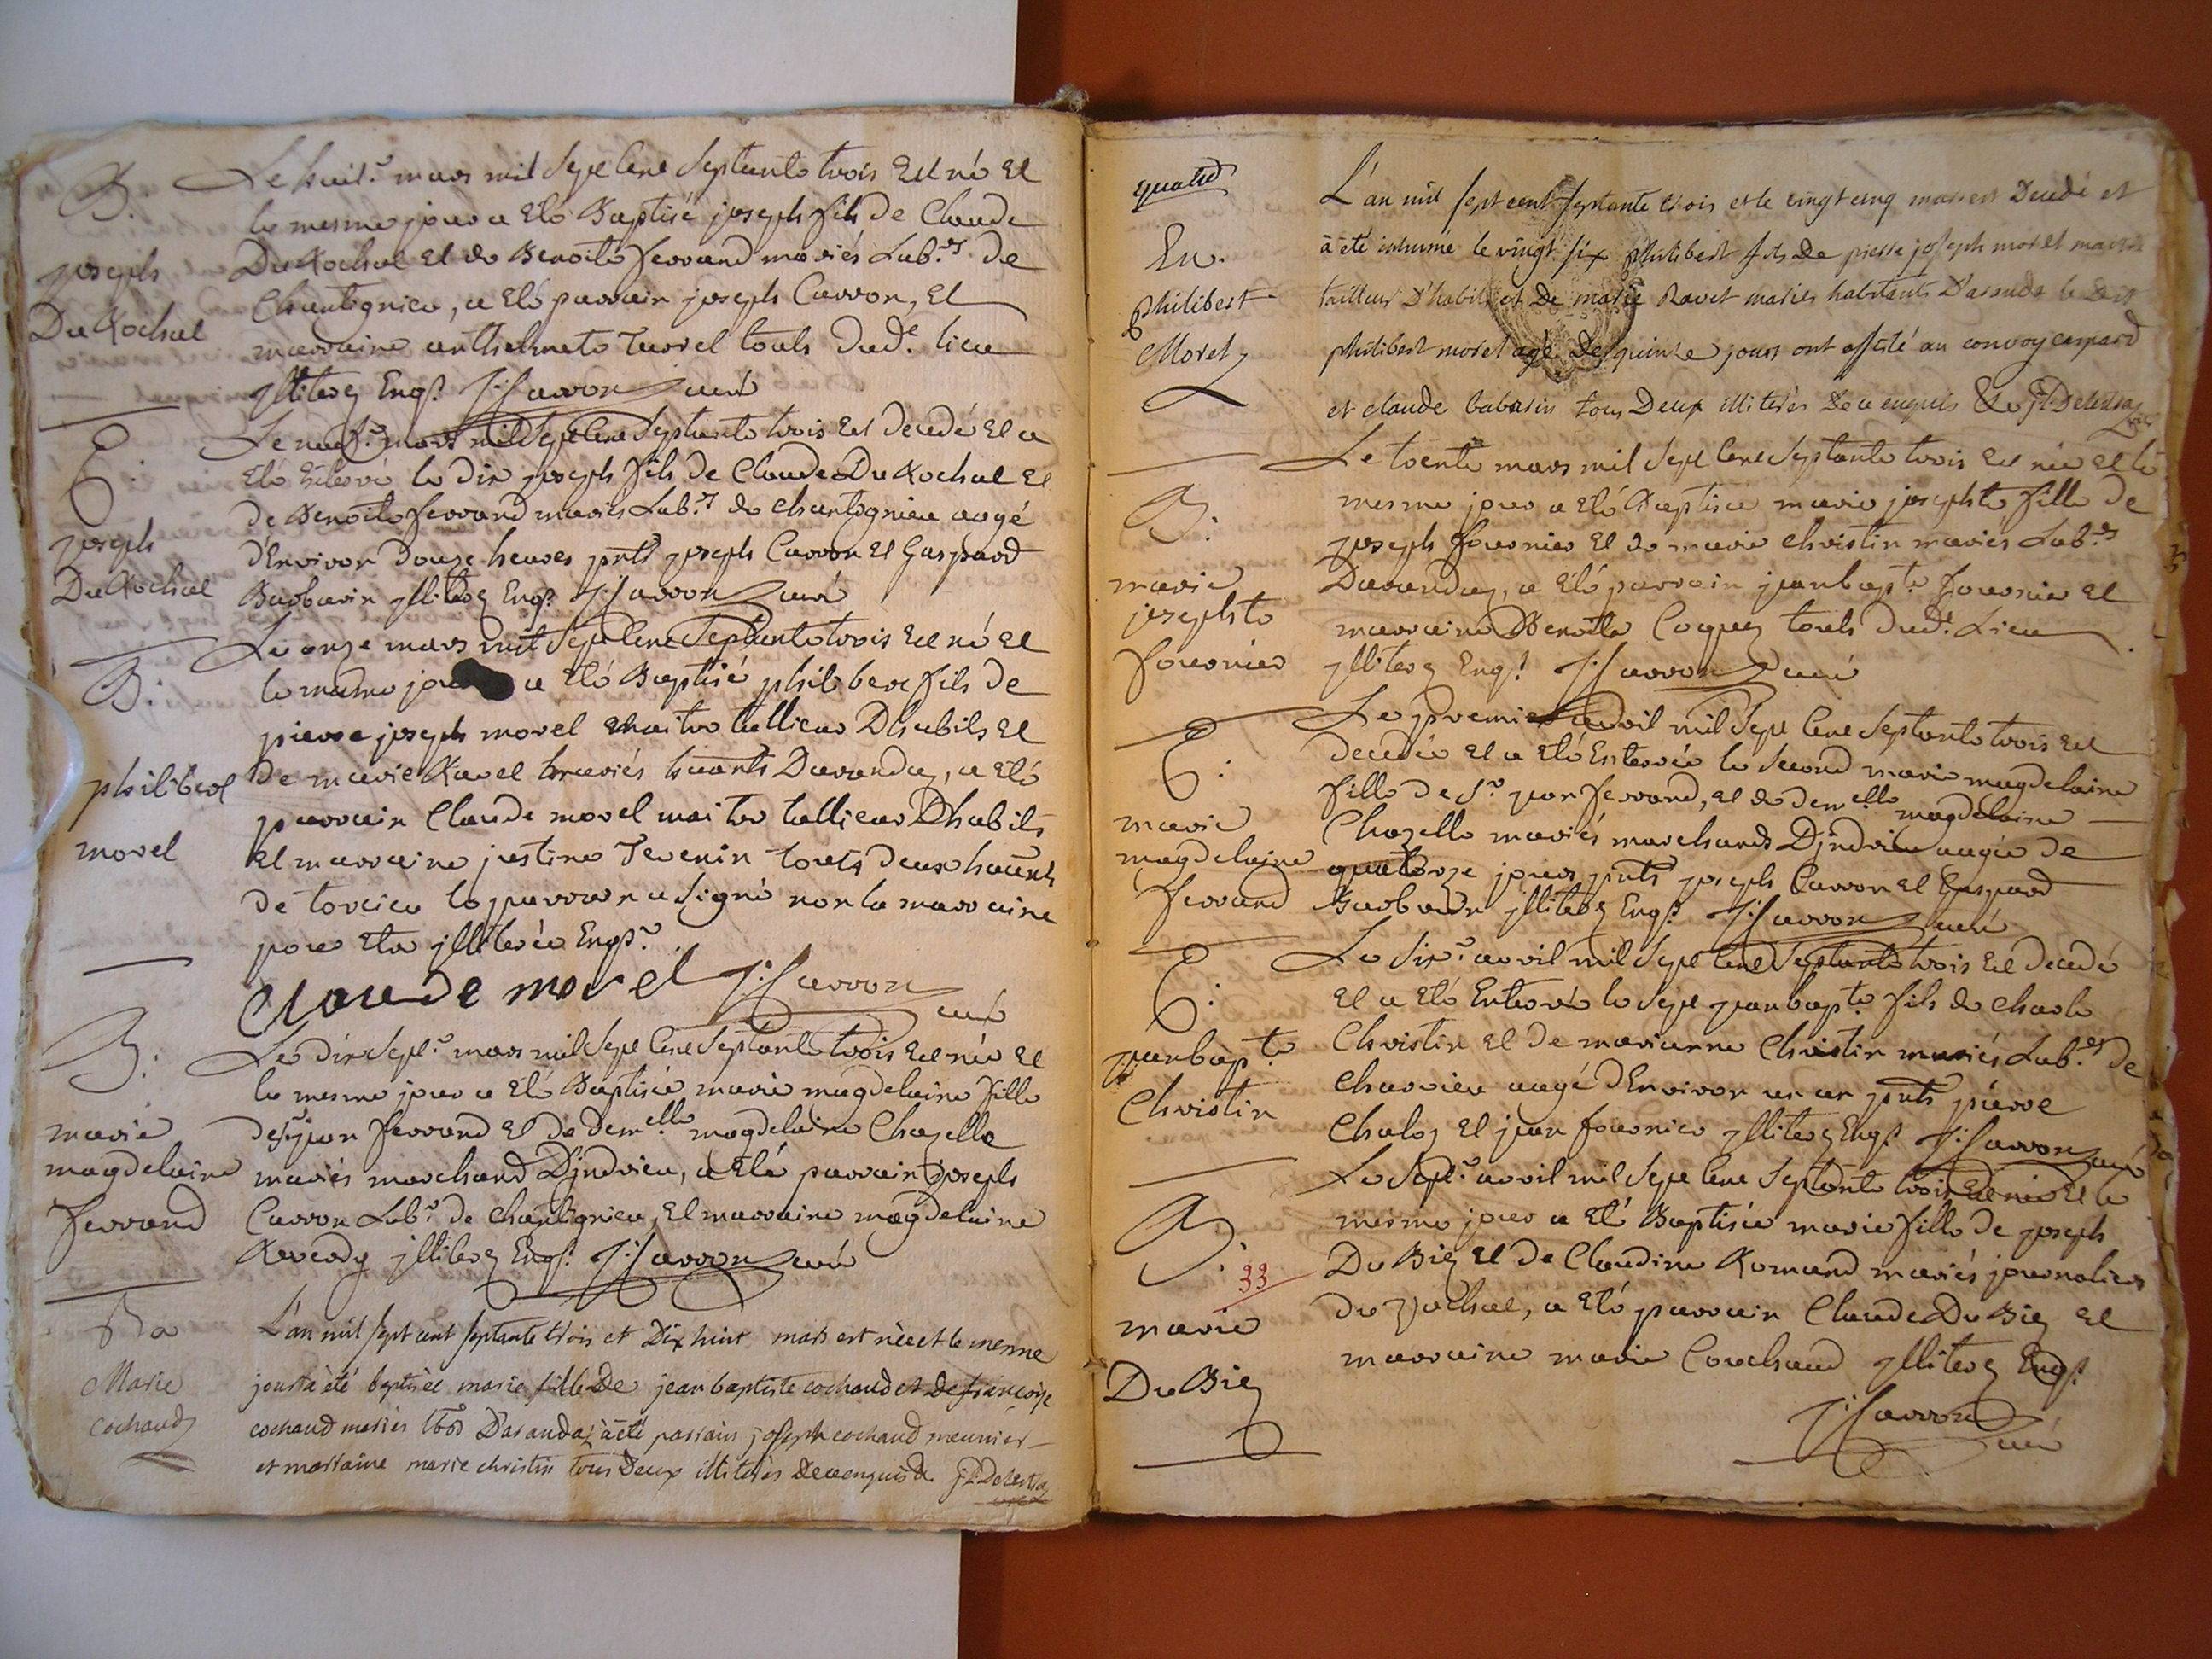 B.
joseph
Du Rochat
Le huit.e mars mil sept cent septante trois est né et
le mesme jour a eté Baptisé joseph fils de Claude
Du Rochat et de Benoite ferrand mariés Lab.rs de
Chantignieu, a eté parrain joseph Carron, et
marraine anthelmete morel touts dud.t lieu
jlliterez Enqs. J: Carron curé
E:
joseph
Du Rochat
Le neuf.e mars mil sept cent septante trois est decedé et a
eté Enterré le dix joseph fils de Claude Du Rochat et
de Benoite ferrand mariés Lab.rs de chantignieu aagé
d'Environ douze heures pnts joseph Carron et Gaspard
Barbarin jlliterez Enqs. J: Carron curé
B:
philibert
morel
Le onze mars mil sept cent septante trois est né et
le mesme jour a eté Baptisé philibert fils de
pierre joseph morel maitre tallieur Dhabits et
de marie Ravet mariés hants Darandaz, a eté
parrain Claude morel maitre tallieur Dhabits
et marraine justine Tevenin touts deux hants
de torcieu le parrain a signé non la marraine
pour etre jlliterée Enqse.
Claude morel J: Carron
curé
B:
marie
magdelaine
ferrand
Le dix sept.e mars mil sept cent septante trois est née et
le mesme jour a eté Baptisée marie magdelaine fille
de sr jean ferrand et de demelle magdelaine Chazelle
mariés marchand Djndrieu, a eté parrain joseph
Carron Lab.r de chantignieu, et marraine magdelaine
Revердy jlliterez Enqs. J: Carron curé
Ba
Marie
Cochaud
L'an mil sept cent septante trois et Dix huit mars est nèe et le mesme
jour à été baptisée marie fille De jean baptiste cochaud et De françoise
cochaud mariés D'arandaz à été parrain joseph cochaud meunier
et marraine marie christin tous Deux illiterès De ce enquis
quatre
En.
philibert
Morel
L'an mil sept cent septante trois et le vingt cinq mars est Decedé et
à été inhumé le vingt six philibert fils De pierre joseph morel maitre
tailleur D'habits et De marie Ravet mariés habitants D'aranda le Dit
philibert morel agé De quinze jours ont assisté au convoy caspard
et claude babarin tous Deux illiterès De ce enquis
B.
marie
josephte
fournier
Le trente mars mil sept cent septante trois est née et le
mesme jour a eté Baptisée marie josephte fille de
joseph fournier et de marie christin mariés Lab.rs
Darandaz, a eté parrain jean bapt.e fournier et
marraine Benoite Coquez touts dud.t Lieu
jlliterez Enqs. J: Carron curé
E:
marie
magdelaine
ferrand
Le premier avril mil sept cent septante trois est
decedée et a eté Enterrée le second marie magdelaine
fille de S.r jean ferrand, et de demelle magdelaine
Chazelle mariés marchands Djndrieu aagée de
quatorze jours pnts joseph Carron et Gaspard
Barbarin jlliterez Enqs. J: Carron curé
E:
jean bap.te
Christin
Le six.e avril mil sept cent septante trois est decedé
et a eté Enterré le sept jean bapt.e fils de charle
Christin et de marianne Christin mariés Lab.rs de
charvieu aagé d'Environ un an pnts pierre
Chaley et jean fournier jlliterez Enqs. J: Carron curé
B.
33
marie
Du Biez
Le Sept.e avril mil sept cent septante trois est née et le
mesme jour a eté Baptisée marie fille de joseph
Du Biez et de Claudine Romand mariés journaliers
du, a eté parrain Claude Du Biez et
marraine marie Couchaud jlliterez Enqs.
J: Carron
curé